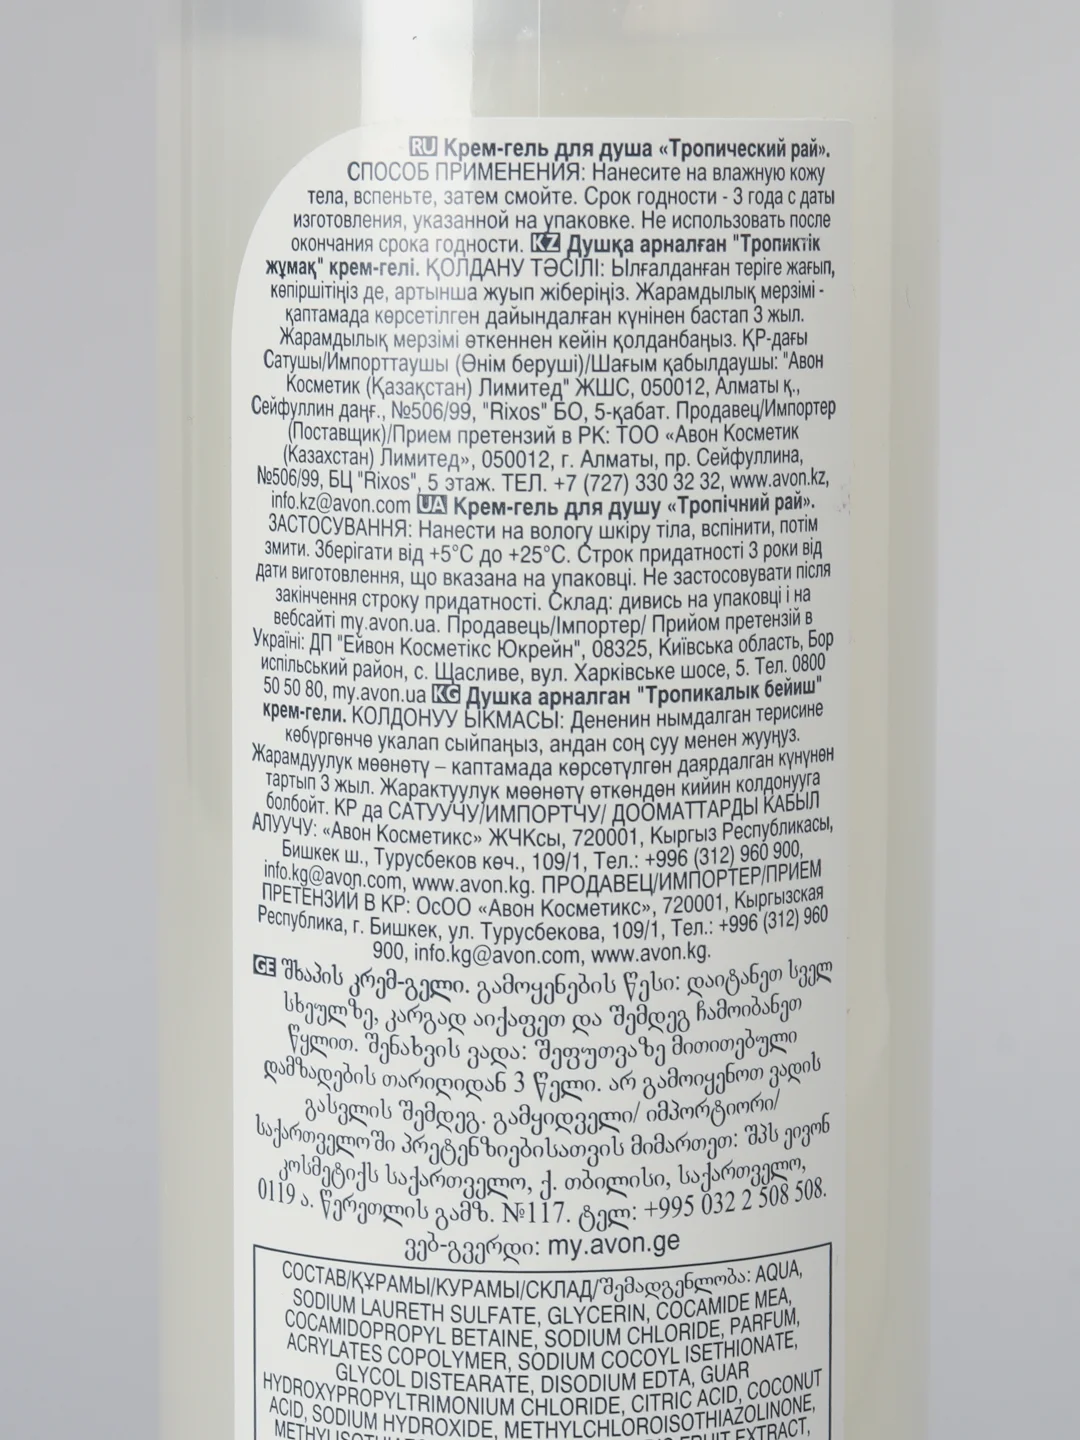 RU Крем-гель для душа «Тропический рай».
СПОСОБ ПРИМЕНЕНИЯ: Нанесите на влажную кожу
тела, вспеньте, затем смойте. Срок годности - 3 года с даты
изготовления, указанной на упаковке. Не использовать после
окончания срока годности. KZ Душқа арналған "Тропиктік
жұмақ" крем-гелі. ҚОЛДАНУ ТӘСІЛІ: Ылғалданған теріге жағып,
көпіршітіңіз де, артынша жуып жіберіңіз. Жарамдылық мерзімі -
қаптамада көрсетілген дайындалған күнінен бастап 3 жыл.
Жарамдылық мерзімі өткеннен кейін қолданбаңыз. ҚР-дағы
Сатушы/Импорттаушы (Өнім беруші)/Шағым қабылдаушы: "Авон
Косметик (Қазақстан) Лимитед" ЖШС, 050012, Алматы қ.,
Сейфуллин даңғ., №506/99, "Rixos" БО, 5-қабат. Продавец/Импортер
(Поставщик)/Прием претензий в РК: ТОО «Авон Косметик
(Казахстан) Лимитед», 050012, г. Алматы, пр. Сейфуллина,
№506/99, БЦ "Rixos", 5 этаж. ТЕЛ. +7 (727) 330 32 32, www.avon.kz,
info.kz@avon.com UA Крем-гель для душу «Тропічний рай».
ЗАСТОСУВАННЯ: Нанести на вологу шкіру тіла, вспінити, потім
змити. Зберігати від +5°С до +25°С. Строк придатності 3 роки від
дати виготовлення, що вказана на упаковці. Не застосовувати після
закінчення строку придатності. Склад: дивись на упаковці і на
вебсайті my.avon.ua. Продавець/Імпортер/ Прийом претензій в
Україні: ДП "Ейвон Косметікс Юкрейн", 08325, Київська область, Бор
испільський район, с. Щасливе, вул. Харківське шосе, 5. Тел. 0800
50 50 80, my.avon.ua KG Душка арналган "Тропикалык бейиш"
крем-гели. КОЛДОНУУ ЫКМАСЫ: Дененин нымдалган терисине
көбүргөнчө укалап сыйпаңыз, андан соң суу менен жууңуз.
Жарамдуулук мөөнөтү – каптамада көрсөтүлгөн даярдалган күнүнөн
тартып 3 жыл. Жарактуулук мөөнөтү өткөндөн кийин колдонууга
болбойт. КР да САТУУЧУ/ИМПОРТЧУ/ ДООМАТТАРДЫ КАБЫЛ
АЛУУЧУ: «Авон Косметикс» ЖЧКсы, 720001, Кыргыз Республикасы,
Бишкек ш., Турусбеков көч., 109/1, Тел.: +996 (312) 960 900,
info.kg@avon.com, www.avon.kg. ПРОДАВЕЦ/ИМПОРТЕР/ПРИЕМ
ПРЕТЕНЗИЙ В КР: ОсОО «Авон Косметикс», 720001, Кыргызская
Республика, г. Бишкек, ул. Турусбекова, 109/1, Тел.: +996 (312) 960
900, info.kg@avon.com, www.avon.kg.
GE შხაპის კრემ-გელი. გამოყენების წესი: დაიტანეთ სველ
სხეულზე, კარგად აიქაფეთ და შემდეგ ჩამოიბანეთ
წყლით. შენახვის ვადა: შეფუთვაზე მითითებული
დამზადების თარიღიდან 3 წელი. არ გამოიყენოთ ვადის
გასვლის შემდეგ. გამყიდველი/ იმპორტიორი/
საქართველოში პრეტენზიებისათვის მიმართეთ: შპს ეივონ
კოსმეტიქს საქართველო, ქ. თბილისი, საქართველო,
0119 ა. წერეთლის გამზ. №117. ტელ: +995 032 2 508 508.
ვებ-გვერდი: my.avon.ge
СОСТАВ/ҚҰРАМЫ/КУРАМЫ/СКЛАД/შემადგენლობა: AQUA,
SODIUM LAURETH SULFATE, GLYCERIN, COCAMIDE MEA,
COCAMIDOPROPYL BETAINE, SODIUM CHLORIDE, PARFUM,
ACRYLATES COPOLYMER, SODIUM COCOYL ISETHIONATE,
GLYCOL DISTEARATE, DISODIUM EDTA, GUAR
HYDROXYPROPYLTRIMONIUM CHLORIDE, CITRIC ACID, COCONUT
ACID, SODIUM HYDROXIDE, METHYLCHLOROISOTHIAZOLINONE,
FRUIT EXTRACT,